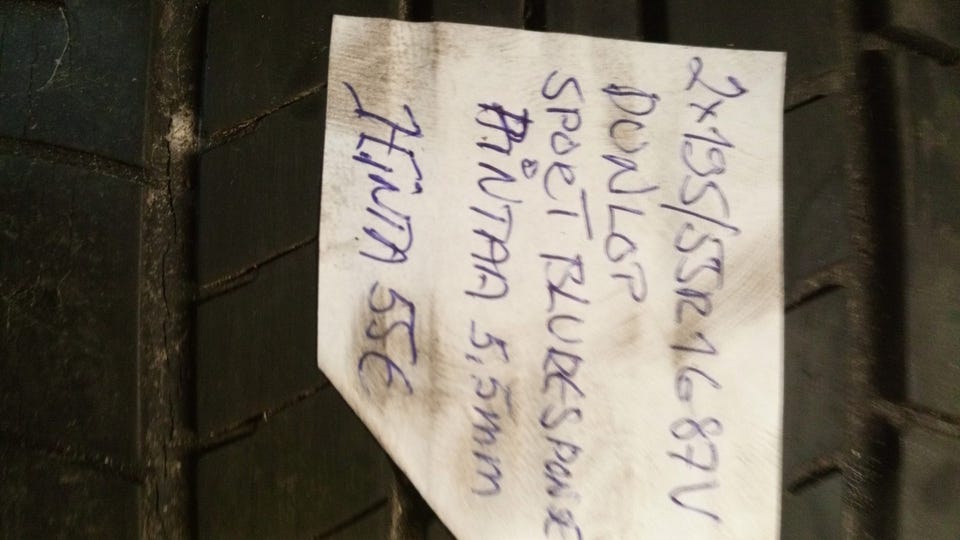 2x195/55R16 87V
DUNLOP
SPORT BLURESPONSE
PINTAA 5,5mm
HINTA 55€